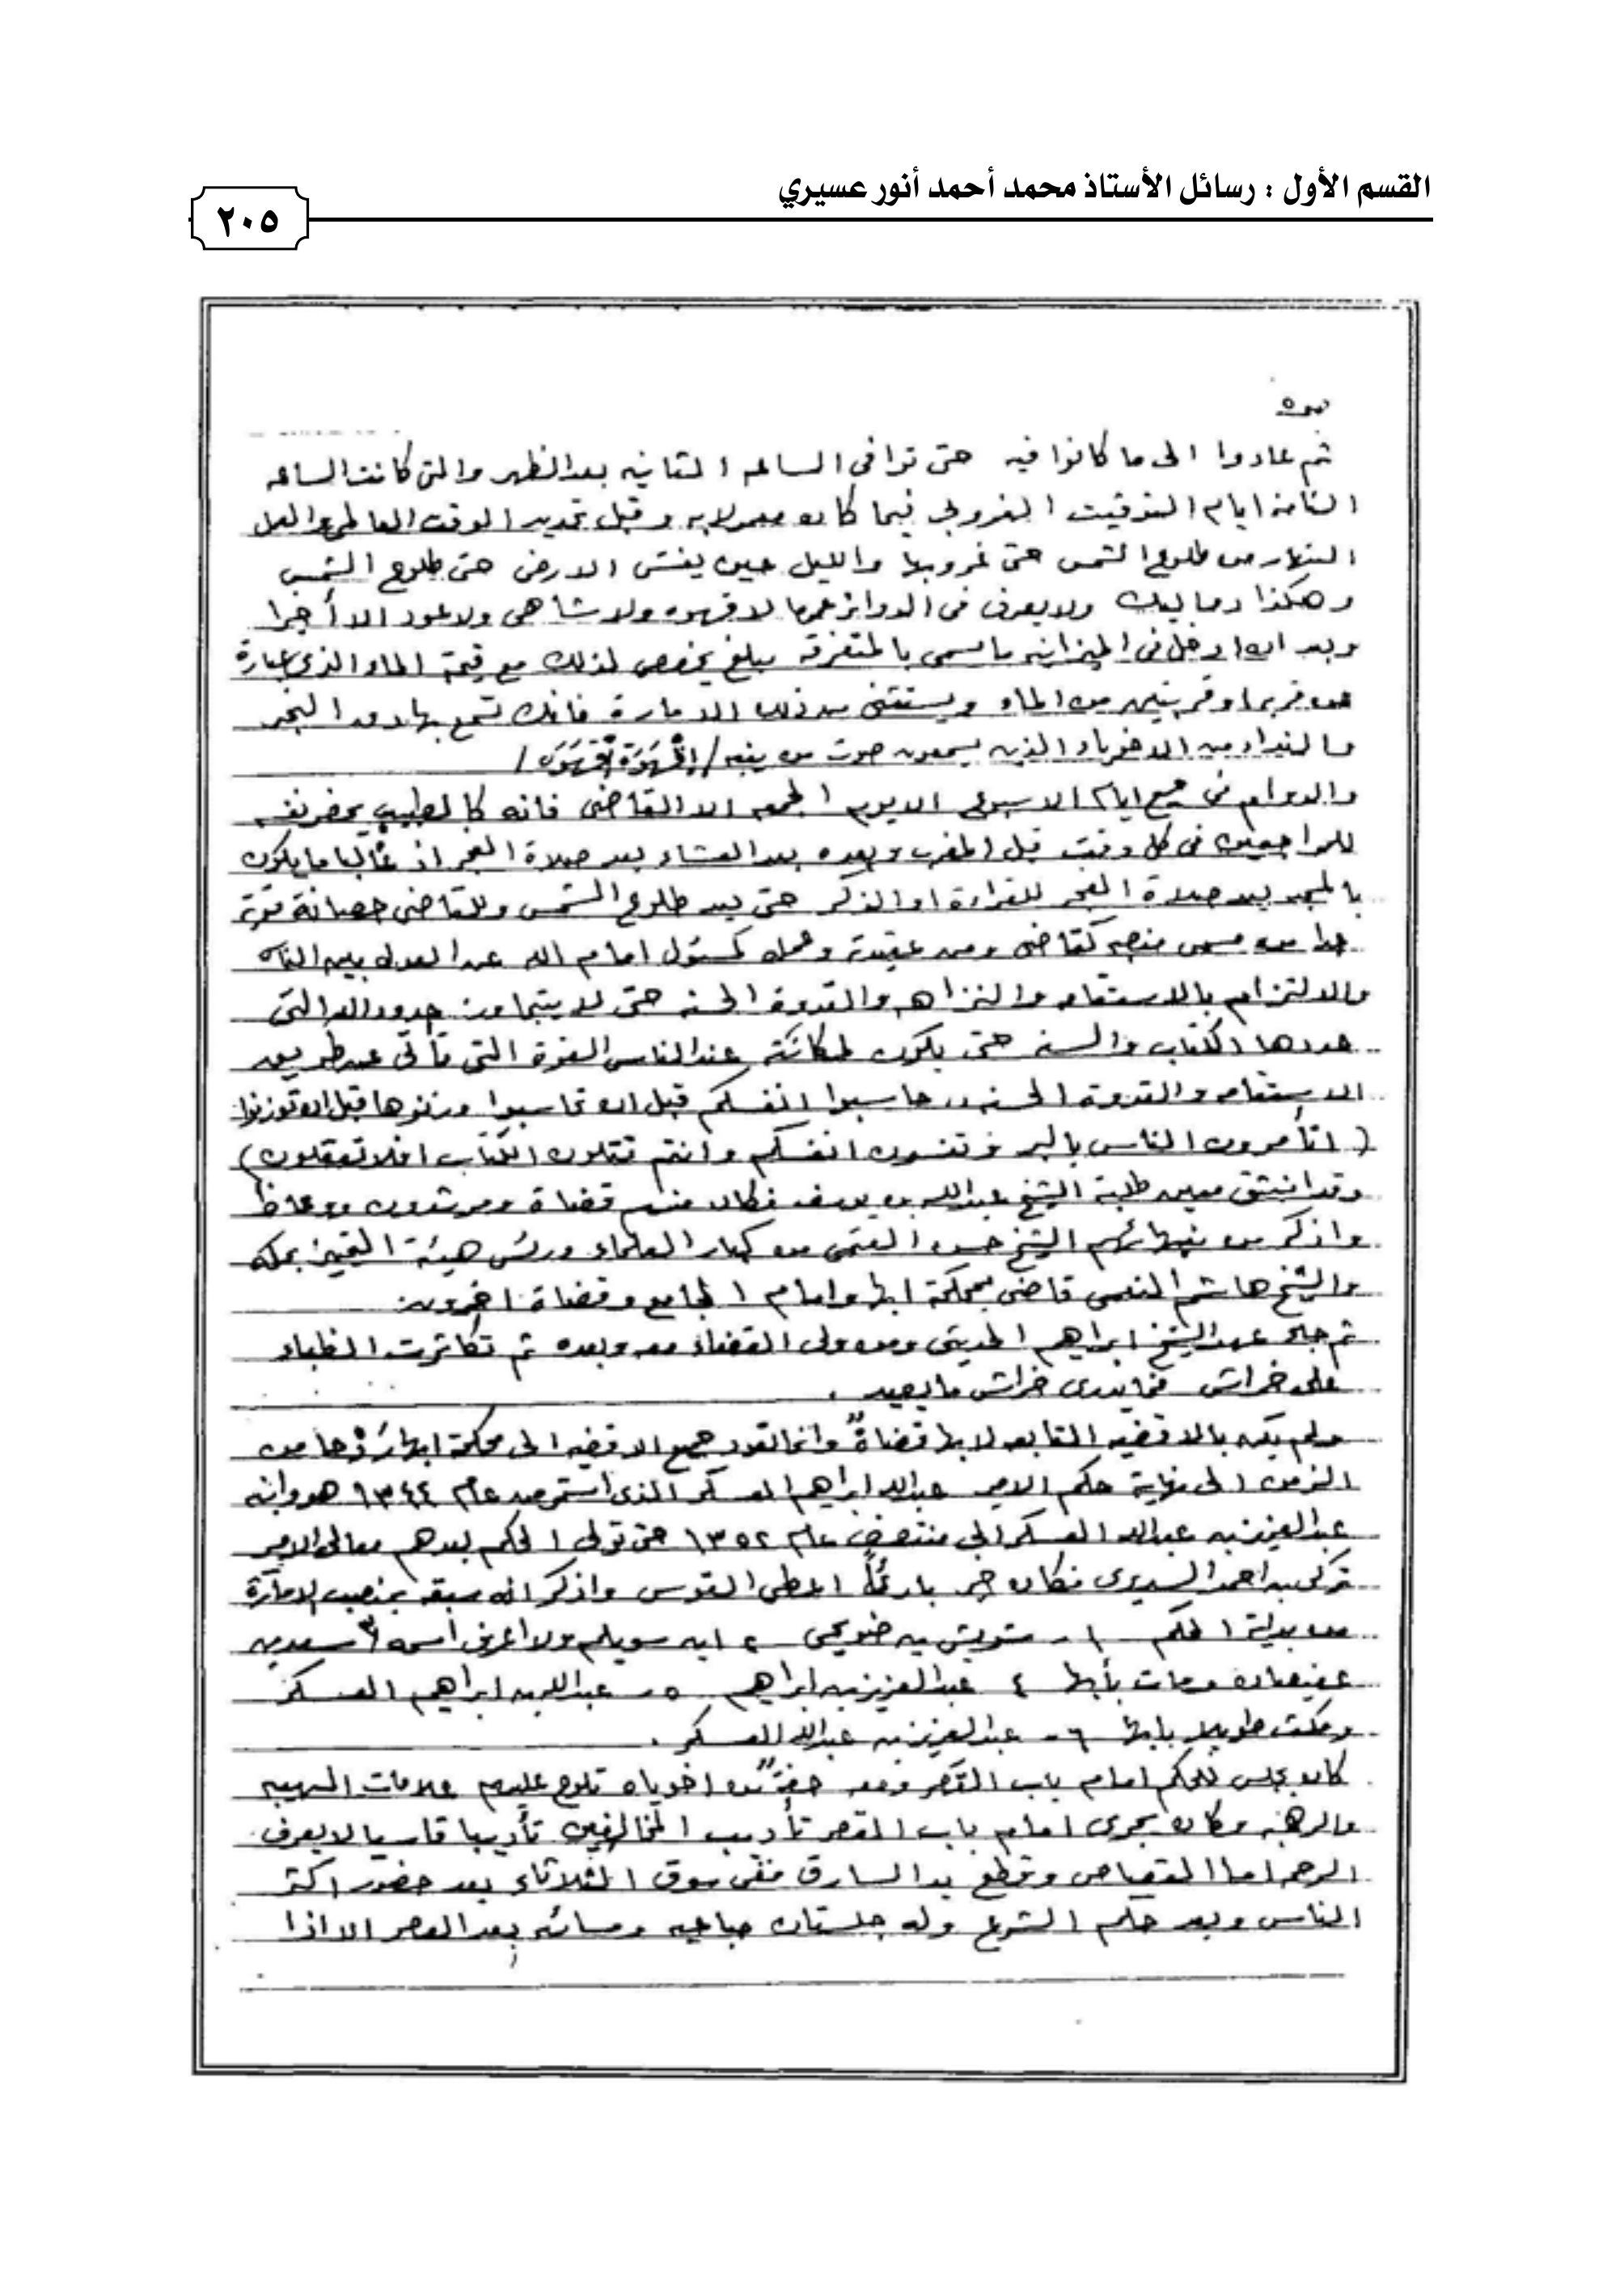 القسم الأول : رسائل الأستاذ محمد أحمد أنور عسيري
٢٠٥
ثم عادوا الى ما كانوا فيه حتى توافى الساعه الثانيه بعد الظهر والتى كانت الساعه
الثامنه ايام التوقيت الغروبى فيما كان معمولا به وقبل تحديد الوقت العالمى والعمل
النهار من طلوع الشمس حتى غروبها والليل حين يغشى الارض حتى طلوع الشمس
وهكذا دماليك ولا يعرف فى الدوائر لا قهوه ولا شاهى ولا عود الا أخيرا
وبعد ان ادخل فى الميزانيه ما يسمى بالمتفرقه مبلغ يخصص لذلك مع قيمة الماء الذى عبارة
عن قربه او قربتين من الماء ويستثنى من ذلك الامارة فانك تسمع بها دق النجر
والنداء من الاخوياء الذين يسمعون صوت من ينبه / إقْهَوَهْ قْهَوَهْ /
والدوام فى جميع ايام الاسبوع الا يوم الجمعه الا القاضى فانه كالطبيب يحضر نفسه
للمراجعين فى كل وقت قبل المغرب وبعده بعد العشاء بعد صلاة الفجر اذ غالبا ما يكون
بالمسجد بعد صلاة الفجر للقراءة او الذكر حتى بعد طلوع الشمس وللقاضى حصانة قوية
جدا من منصبه كقاضى ومن عقيدته وعمله كمسئول امام الله عن العدل بين الناس
والالتزام بالاستقامه والنزاهه والقدوة الحسنه حتى لا يتجاوز حدود الله التى
حددها الكتاب والسنه حتى يكون لمكانته عند الناس القوة التى تأتى عن طريق
الاستقامه والقدوة الحسنه ,, حاسبوا انفسكم قبل ان تحاسبوا وزنوها قبل ان توزنوا
( اتأمرون الناس بالبر وتنسون انفسكم وانتم تتلون الكتاب افلا تعقلون )
وقد انبثق من طلبة الشيخ عبدالله بن يوسف فكان منهم قضاة ومرشدون ووعاظ
واذكر من نبهائهم الشيخ حسن العتمى من كبار العلماء ورئس هيئة التمييز بمكه
والشيخ هاشم النعمى قاضى بمحكمة ابها وامام الجامع وقضاة اخرون
ثم جاء عهد الشيخ ابراهيم الحديثى ومن ولى القضاء معه وبعده ثم تكاثرت الظباء
على خراش فما يدرى خراش ما يصيد .
ولم يكن بالاقضيه التابعه لابها قضاةٌ وانما تعود جميع الاقضيه الى محكمة ابها ردْحا من
الزمن الى نهاية حكم الامير عبدالله ابراهيم العسكر الذى استمر من عام ١٣٤٤ هو وابنه
عبدالعزيز بن عبدالله العسكر الى منتصف عام ١٣٥٢ حتى تولى الحكم بعدهم معالى الامير
تركى بن احمد السديرى فكان خير بارئاً اعطى القوس واذكر انه سبقه بمنصب الامارة
من بداية الحكم ١ - شويش بن ضويحى ٢ ابن سويلم ولا اعرف اسمه ٣ سعد بن
عفيصان ومات بأبها ٤ عبدالعزيز بن ابراهيم ٥ - عبدالله بن ابراهيم العسكر
ومكث طويلا بابها ٦ - عبدالعزيز بن عبدالله العسكر .
كان يجلس للحكم امام باب القصر ومعه من اخوياه تلوح عليهم علامات الهيبه
والرهبه وكان يجرى امام باب القصر تأديب المخالفين تأديبا قاسيا لا يعرف
الرحمه اما القصاص وقطع يد السارق ففى سوق الثلاثاء بعد حضور اكثر
الناس وبعد حكم الشرع وله جلستان صباحيه ومسائيه بعد العصر الا اذا